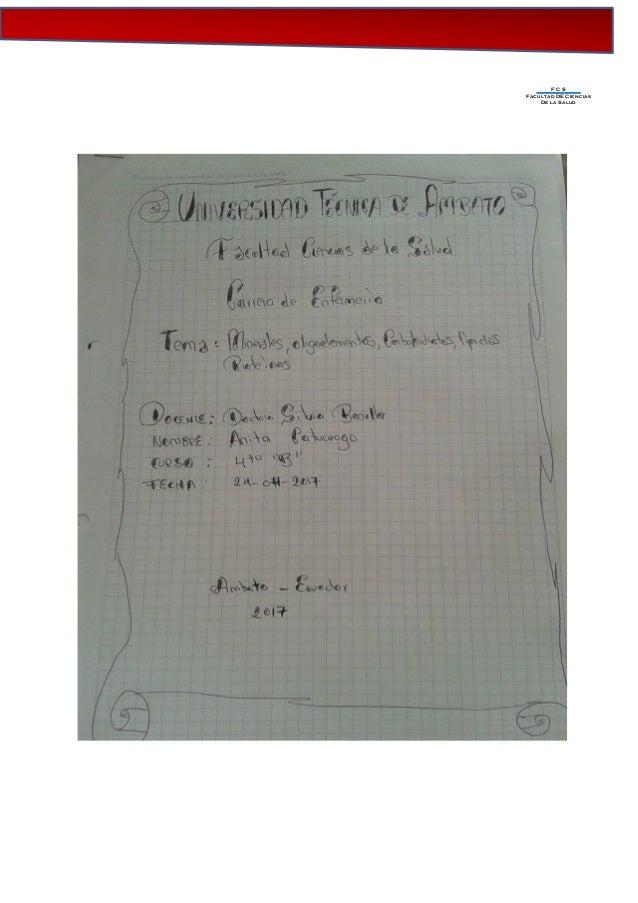 F C S
FACULTAD DE CIENCIAS
DE LA SALUD
UNIVERSIDAD TÉCNICA DE AMBATO
Facultad Ciencias de la Salud
Carrera de Enfermería
Tema: Minerales, oligoelementos, Carbohidratos, lípidos
Proteínas
DOCENTE: Doctora Silvia
NOMBRE: Anita
CURSO: 4to "B"
FECHA: 24-04-2017
Ambato - Ecuador
2017